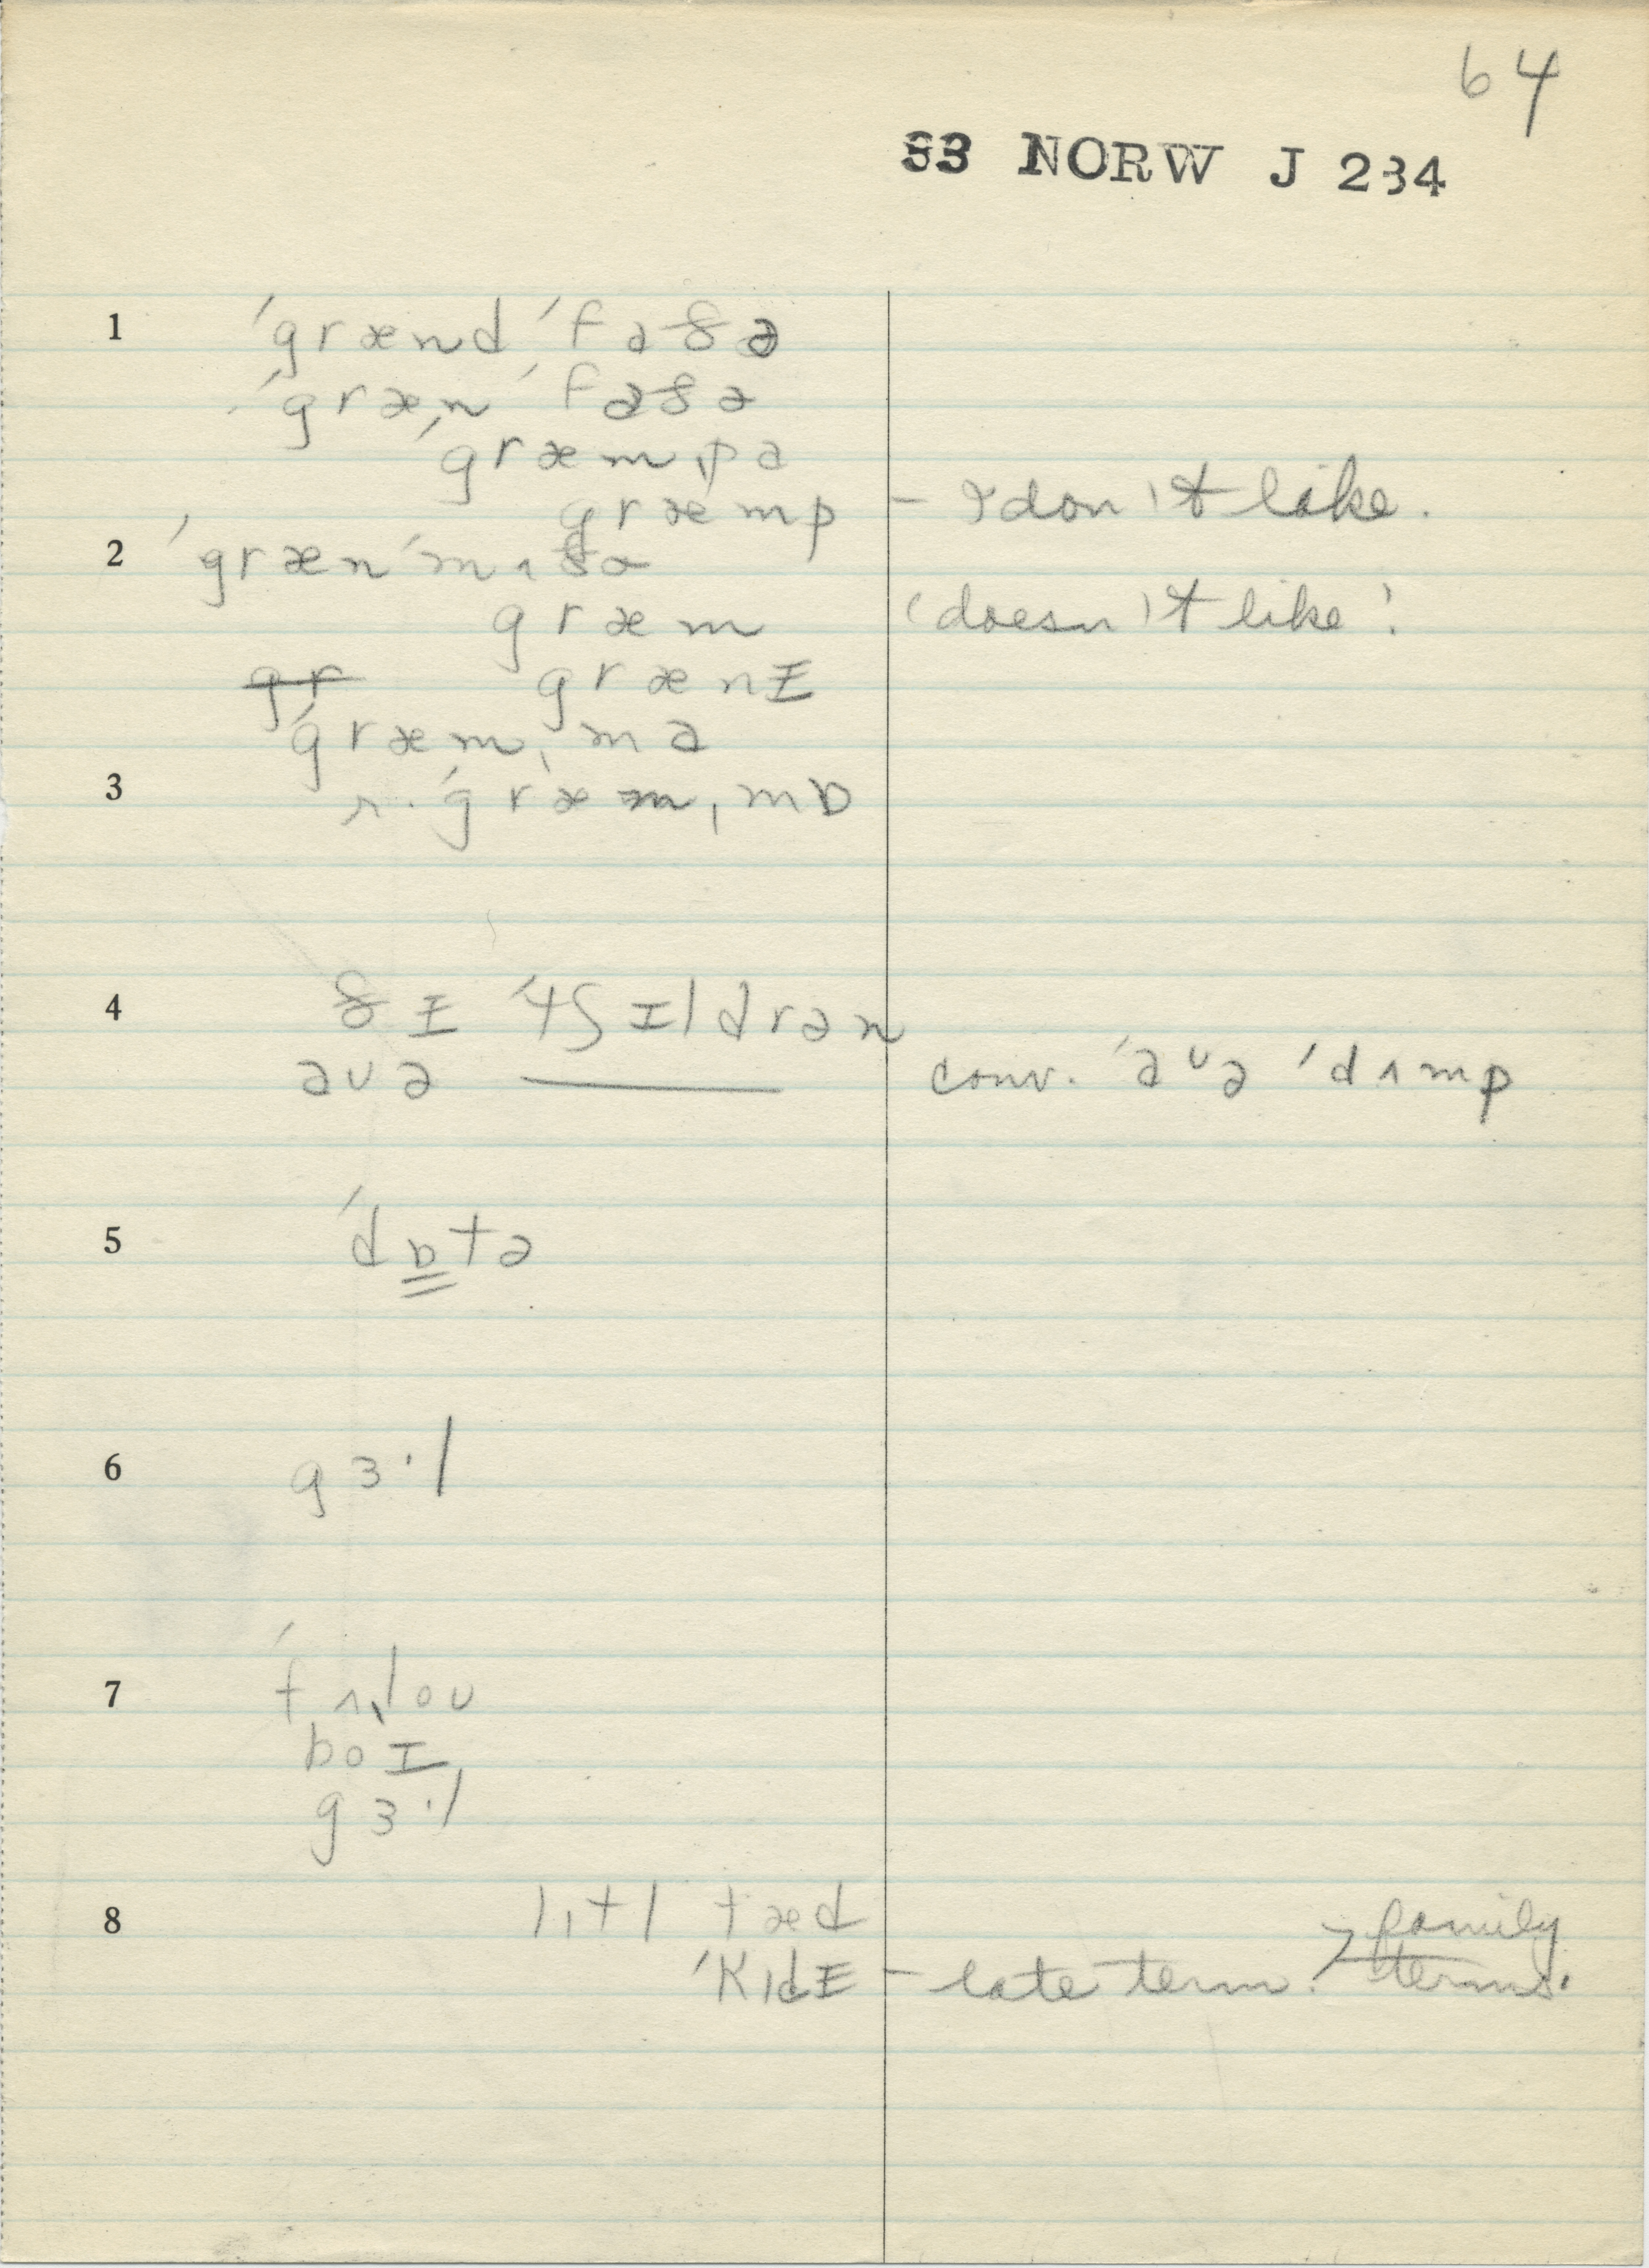 64
33 NORW J 234
1 ˈgrænd ˈfaðə
ˈgræn ˈfaðə
ˈgræmˌpa
græmp – I don't like.
2 ˈgræn ˈmʌðə
græm 'doesn't like'.
g̶r̶ grænɪ
ˈgræmˌma
3 r. ˈgræmˌmɒ
4 ðɪ ˈtʃɪldrən
əvə ——— conv. ˈəvə ˈdʌmp
5 ˈdɒtə
6 gɜ·l
7 ˈfʌˌloʊ
boɪ
gɜ·l
8 lɪtl tæd
ˈkɪdɪ – late term. > family terms.